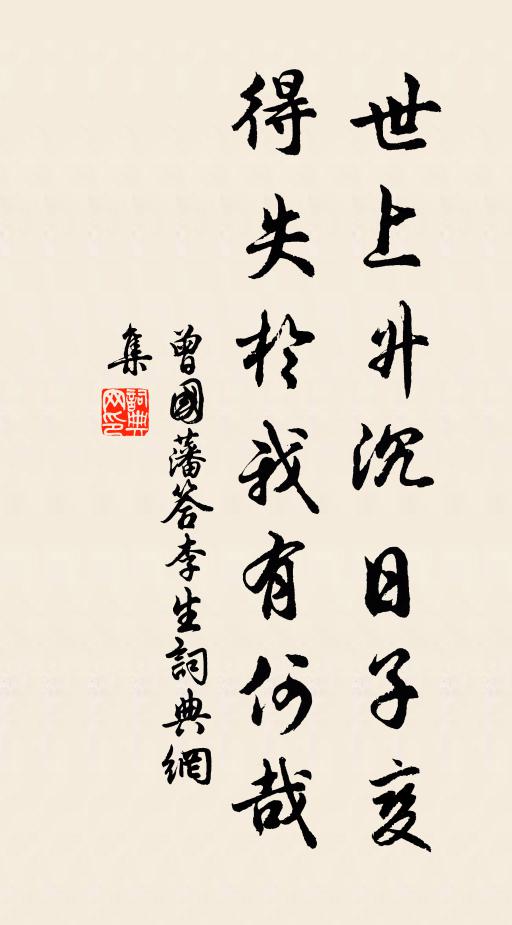 世上升沉日子变
得失於我有何哉
曾國藩答李生詞典網
集
詞典网印